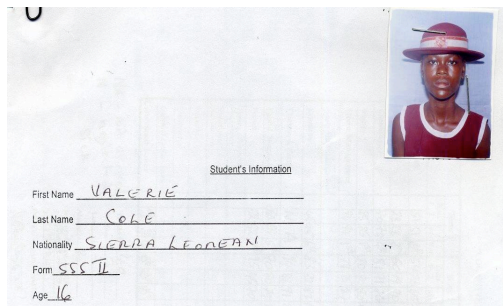 Student's Information
First Name VALERIE
Last Name COLE
Nationality SIERRA LEONEAN
Form SSS II
Age 16